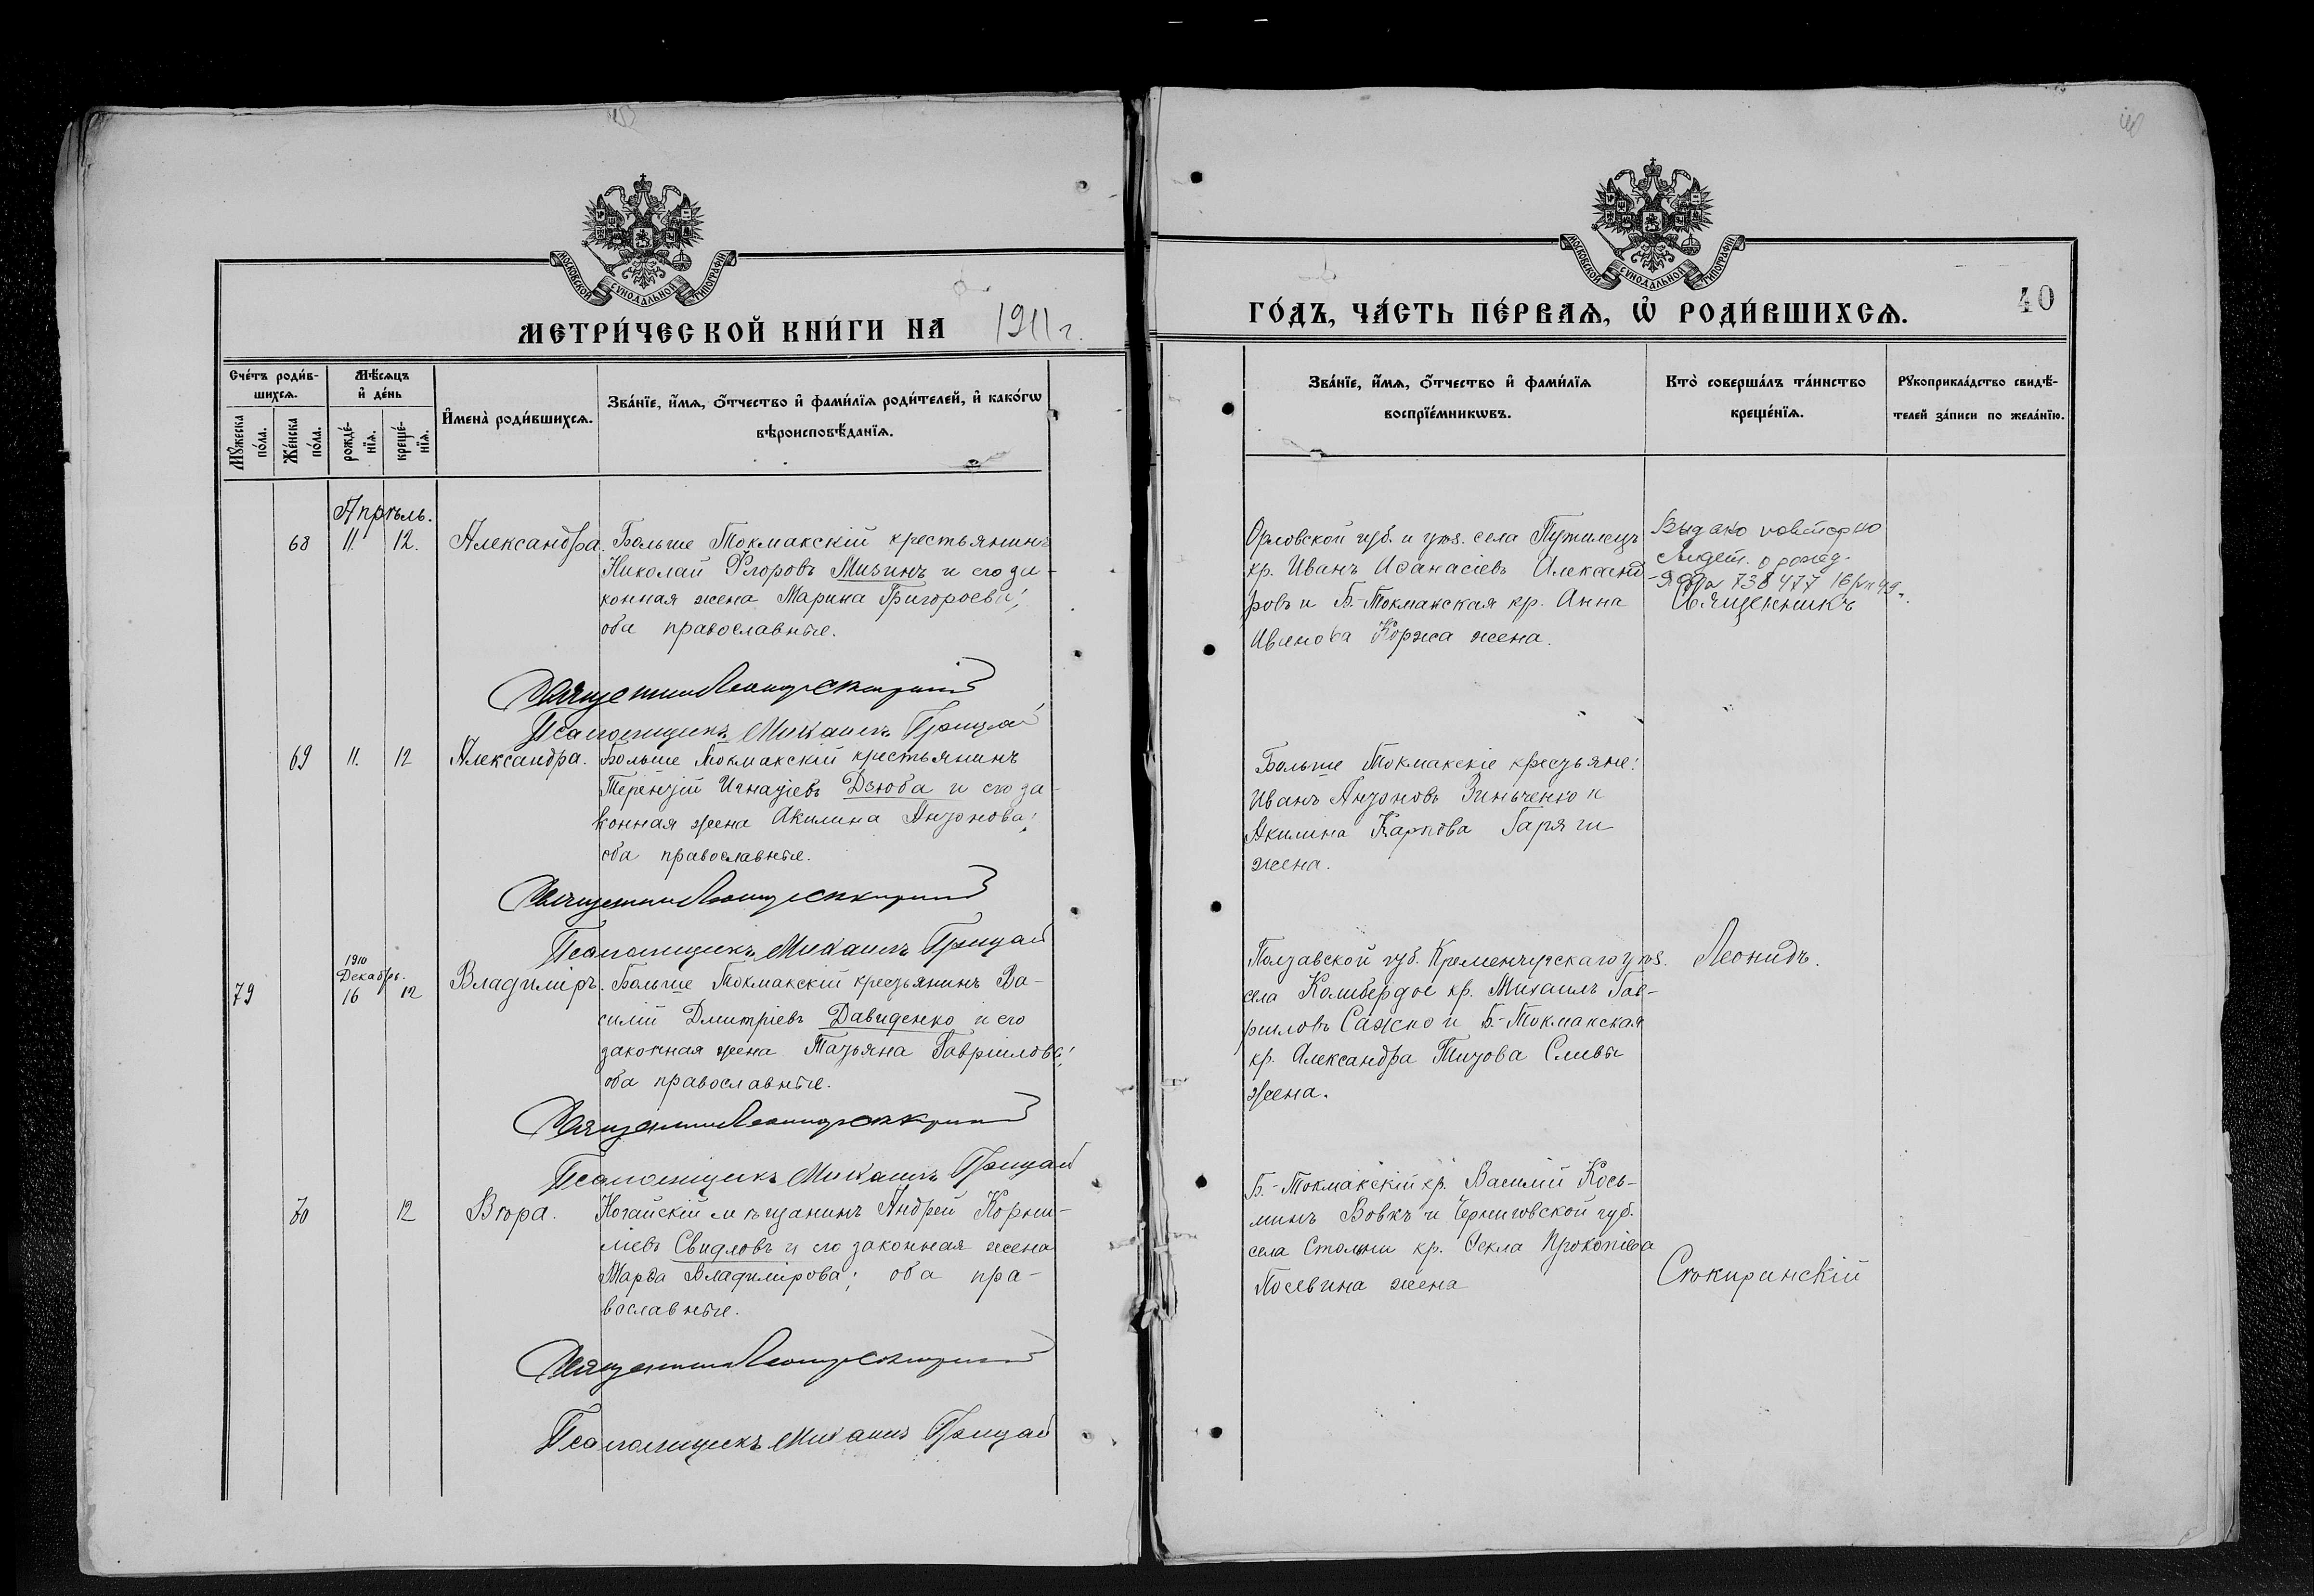 МОСКОВСКОЙ СУНОДАЛЬНОЙ ТИПОГРАФІИ
МЕТРИ́ЧЕСКОЙ КНИ́ГИ НА 1911 г.
Сче́тъ роди́в-
шихсѧ.
Мꙋ́жеска по́ла.
Же́нска по́ла.
Мѣ́сѧцъ
и҆ де́нь
рожде́-
нїѧ.
креще́-
нїѧ.
И҆мена̀ роди́вшихсѧ.
Зва́нїе, и҆́мѧ, ѻ҆́тчество и҆ фами́лїѧ роди́телей, и҆ како́гѡ
вѣроисповѣ́данїѧ.
Апрѣль.
68 11. 12. Александра. Больше Токмакскій крестьянинъ
Николай Ѳедоровъ Мизинъ и его за-
конная жена Марина Григорьева;
оба православные.
Священникъ Леонидъ Скокиринскій
Псаломщикъ Михаилъ Грицай
69 11. 12 Александра. Больше Токмакскій крестьянинъ
Терентій Игнатіевъ Дзюба и его за-
конная жена Акилина Антонова;
оба православные.
Священникъ Леонидъ Скокиринскій
Псаломщикъ Михаилъ Грицай
1910
Декабрь.
79 16 12 Владиміръ. Больше Токмакскій крестьянинъ Ва-
силій Дмитріевъ Давиденко и его
законная жена Татьяна Гавріилова;
оба православные.
Священникъ Леонидъ Скокиринскій
Псаломщикъ Михаилъ Грицай
70 12 Вѣра. Ногайскій мѣщанинъ Андрей Корни-
ліевъ Свидловъ и его законная жена
Марѳа Владимірова; оба пра-
вославные.
Священникъ Леонидъ Скокиринскій
Псаломщикъ Михаилъ Грицай
МОСКОВСКОЙ СУНОДАЛЬНОЙ ТИПОГРАФІИ
ГО́ДЪ, ЧА́СТЬ ПЕ́РВАѦ, Ѡ҆ РОДИ́ВШИХСѦ.
40
Зва́нїе, и҆́мѧ, ѻ҆́тчество и҆ фами́лїѧ
воспрїе́мникѡвъ.
Кто̀ соверша́лъ та́инство
креще́нїѧ.
Рꙋкоприкла́дство свидѣ́-
телей за́писи по жела́нїю.
Орловской губ. и уѣз. села Путимецъ
кр. Иванъ Аѳанасіевъ Александ-
ровъ и Б.-Токмакская кр. Анна
Иванова Коржа жена.
Выдано повторно
свидет. о рожд.
738477
Священникъ
Больше Токмакскіе крестьяне:
Иванъ Антоновъ Зинченко и
Акилина Карпова Гаряги
жена.
Полтавской губ. Кременчугскаго уѣз.
села Келибердое кр. Михаилъ Гав-
риловъ Сажко и Б.-Токмакская
кр. Александра Титова Сливы
жена.
Леонидъ.
Б.-Токмакскій кр. Василій Кось-
минъ Вовкъ и Черниговской губ.
села Стольни кр. Ѳекла Прокопіева
Посевина жена
Скокиринскій